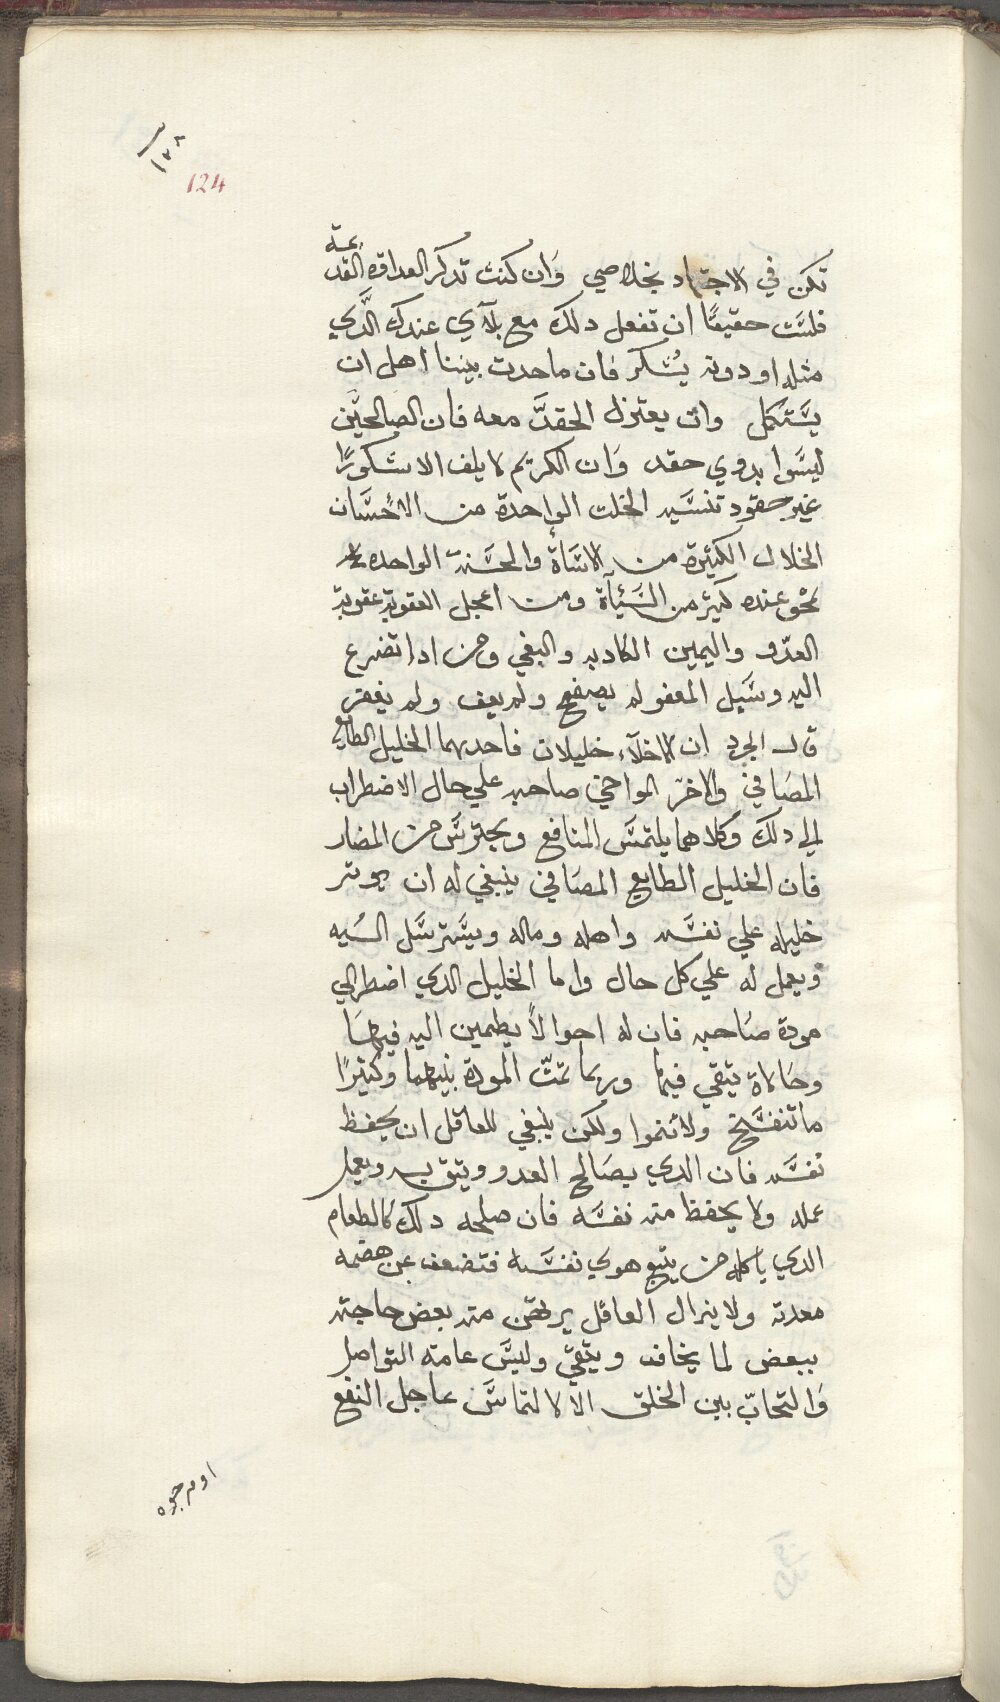 ١٢٨
124
تكن في الاجتهاد بخلاصي وان كنت تدكر العداوه القديمة
فلست حقيقًا ان تفعل دلك مع بلآي عندك الدي
مثله او دونه يشكر فان ما حدت بيننا اهل ان
يستكمل وان يعتزل الحقد معه فان الصالحين
ليسوا بدوي حقد وان الكريم لا يلف الا شكورًا
غير حقود تنسيه الخلت الواحدة من الاحسان
الخلال الكتيرة من الاساة والحسنة الواحده
تمحو عنده كتير من السيأة ومن اعجل العقوبة عقوبة
العدو واليمين الكادبه والبغي ومن ادا تضرع
اليه وسيل العفو لم يصفح ولم يعف ولم يغفر
قال الجرد ان الاخلآء خليلان فاحدهما الخليل الطايع
المصافي والاخر المواخي صاحبه علي حال الاضطراب
الي دلك وكلاهما يلتمس المنافع ويحترس من المضار
فان الخليل الطايع المصافي ينبغي له ان يوتر
خليله علي نفسه واهله وماله ويسترسل اليه
ويعمل له علي كل حال واما الخليل الدي اضطر الي
مودة صاحبه فان له احوالاً يطمين اليه فيها
وحالاة يتقي فيها وربما تمت المودة بينهما وكتيرًا
ما تنفسخ ولا تنموا ولكن ينبغي للعاقل ان يحفظ
نفسه فان الدي يصالح العدو ويتق به ويعمل
عمله ولا يحفظ منه نفسه فان صلحه دلك كالطعام
الدي ياكله من يتبع هوي نفسه فتضعف عن هضمه
معدته ولا يزال العاقل يرتهن منه بعض حاجته
ببعض لما يخاف ويتقي وليس عامة التواصل
والتحاب بين الخلق الا لالتماس عاجل النفع
او مرجوه